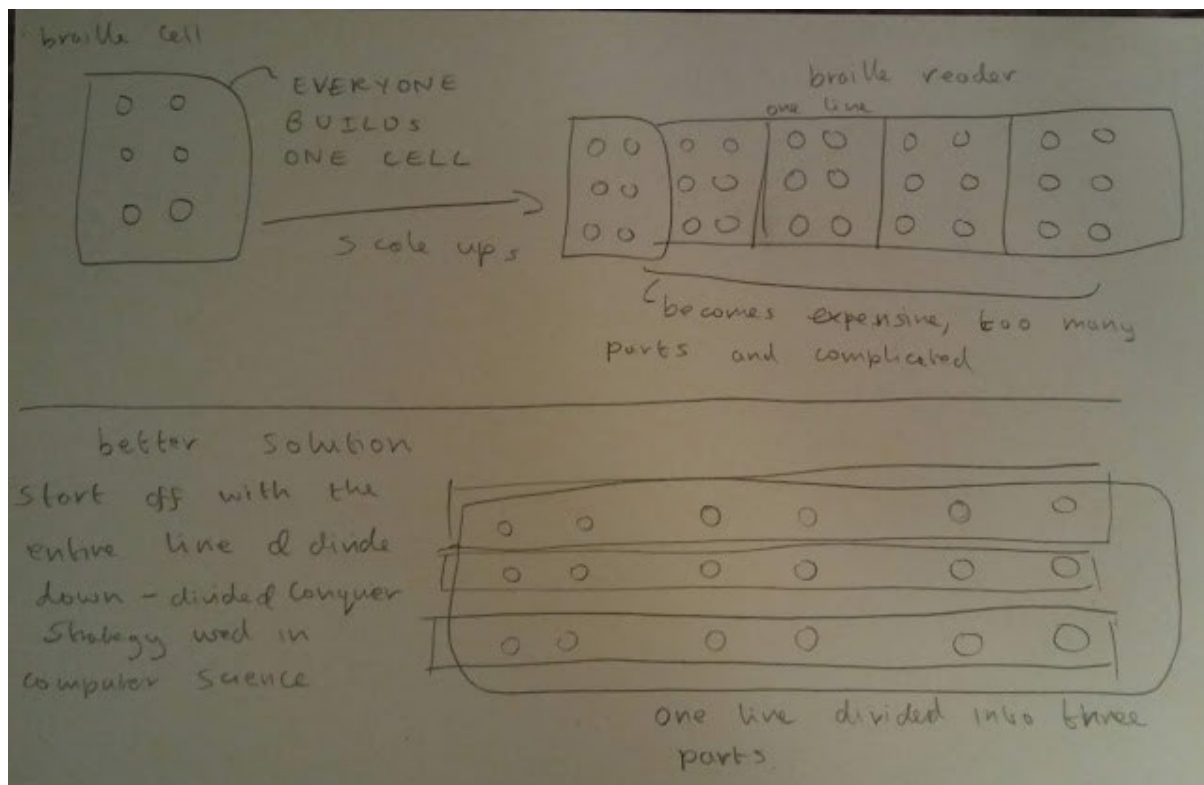 braille cell
EVERYONE
BUILDS
ONE CELL
scale ups
braille reader
one line
becomes expensive, too many
parts and complicated
better solution
start off with the
entire line & divide
down - divided conquer
strategy used in
computer science
one line divided into three
parts